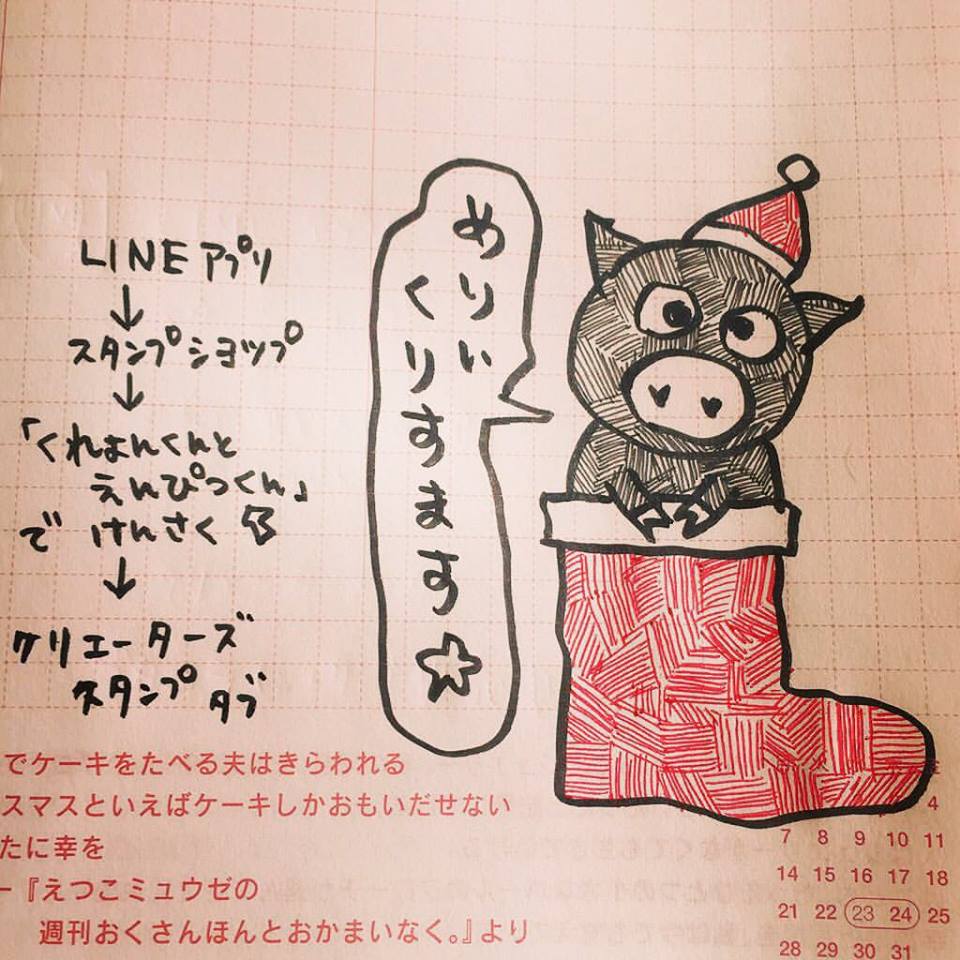 LINEアプリ
↓
スタンプショップ
↓
「くれよんくんと
えんぴつくん」
で けんさく
↓
クリエーターズ
スタンプ タブ
めりい
くりすます☆
でケーキをたべる夫はきらわれる
スマスといえばケーキしかおもいだせない
たに幸を
ー『えつこミュウゼの
週刊おくさんほんとおかまいなく。』より
4
7 8 9 10 11
14 15 16 17 18
21 22 23 24 25
28 29 30 31